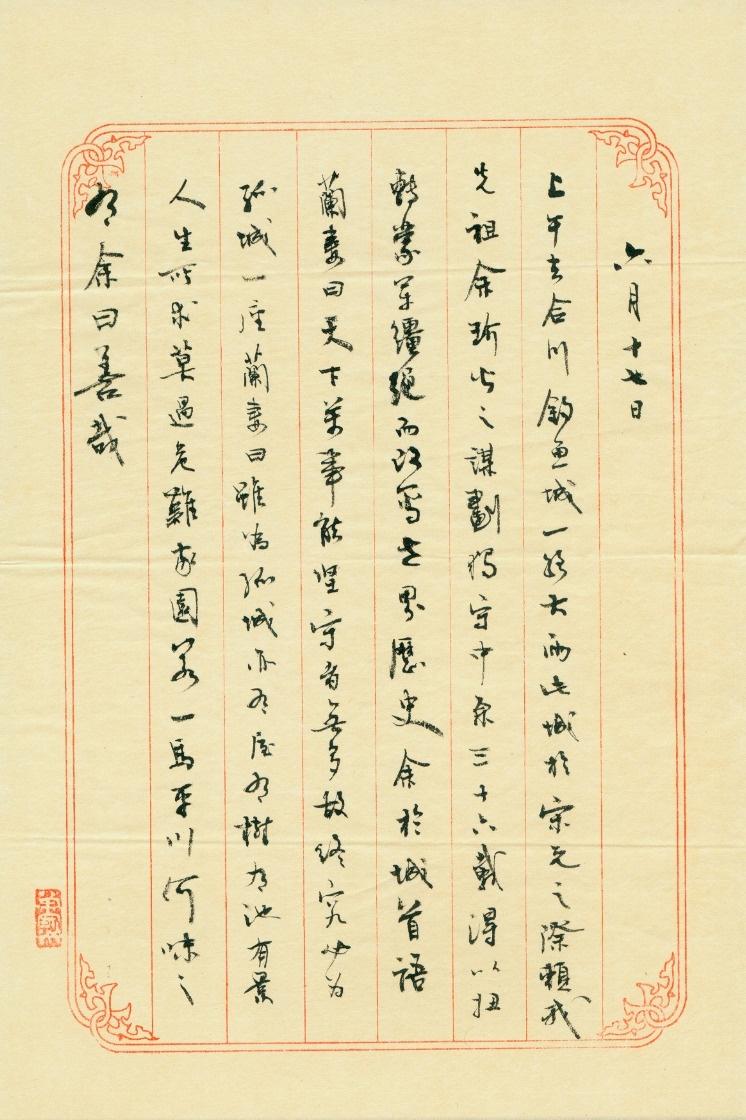 六月十七日
上午去合川釣魚城一路大雨此城於宋元之際賴我
先祖余玠公之謀劃獨守中原三十六載得以扭
轉蒙軍繮繩而改寫世界歷史余於城首語
蘭妻曰天下萬事能堅守者無多故終究必為
孤城一座蘭妻曰雖為孤城亦有屋有樹有池有景
人生所求莫過危難家園若一馬平川何味之
有余曰善哉